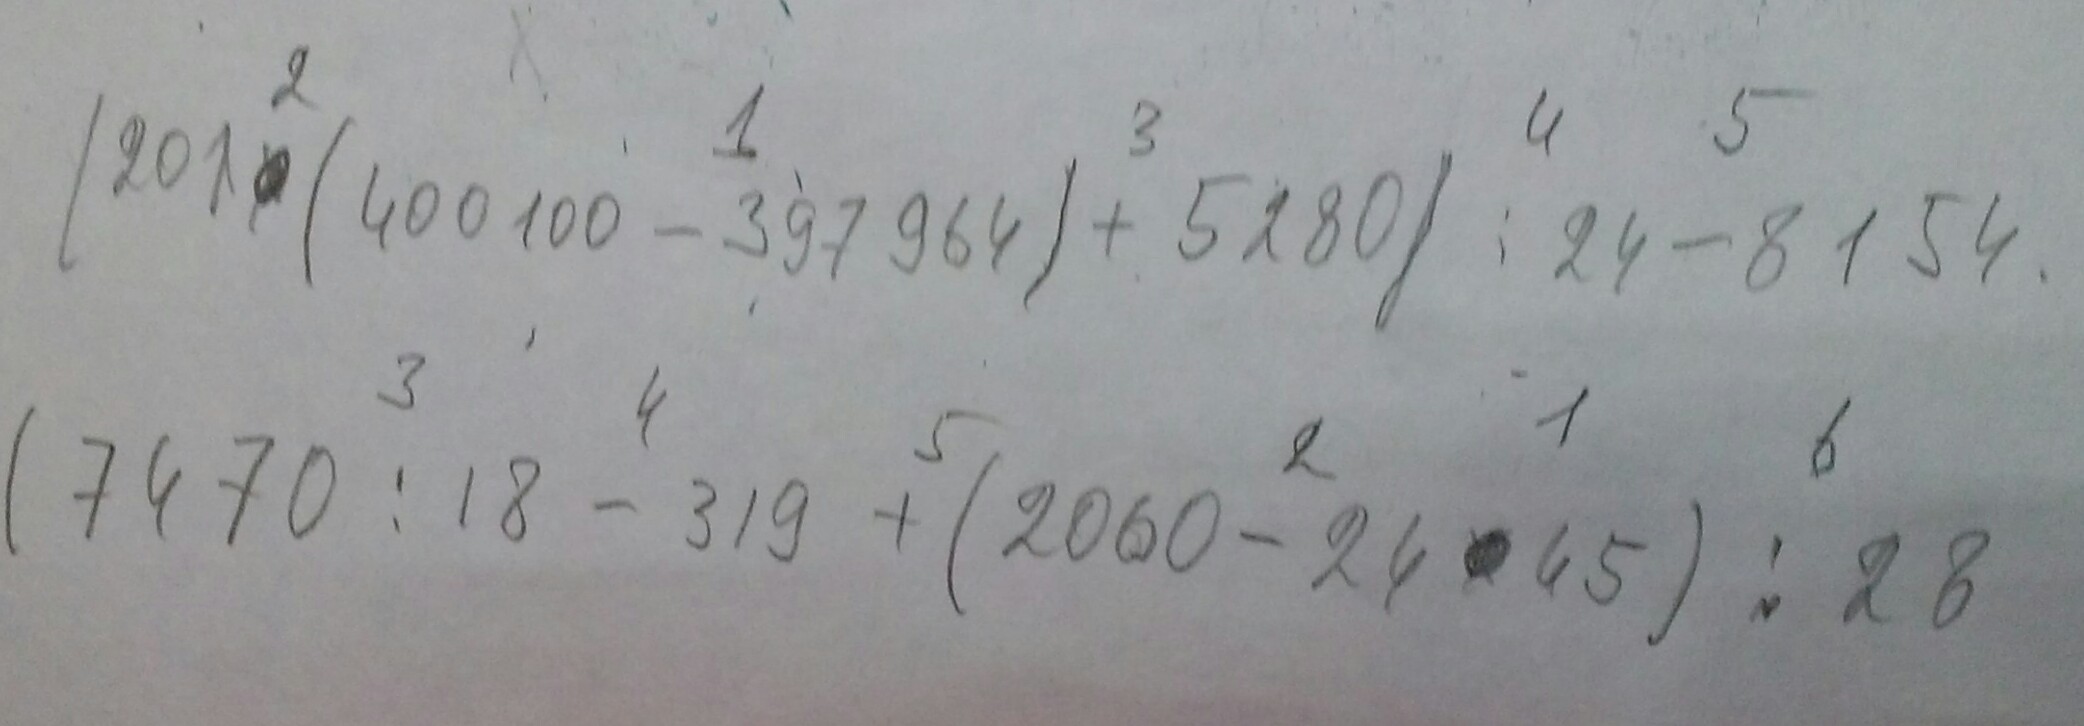 2 1 3 4 5
(201•(400100-397964)+5280):24-8154.
3 4 5 2 1 6
(7470:18-319+(2060-24•45):28